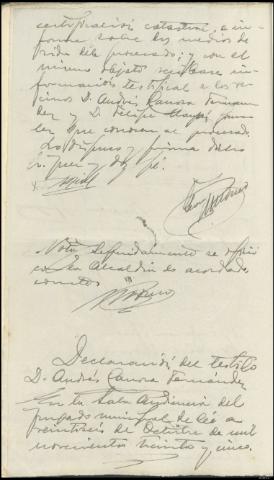 certificación catastral, e in-
forme sobre los medios de
vida del procesado; y con el
mismo objeto recíbase in-
formación testifical a los ve-
cinos D. Andrés Canosa Fernan-
dez y D. Felipe para
ver que conocen al procesado.
Lo dispuso y firma dicho
Sr. Juez y doy fé.
Nota Seguidamente se ofició
a la Alcaldía lo acordado
Declaración del testigo
D. Andrés Canosa Fernandez
En la Sala Audiencia del
Juzgado municipal de Cée a
veintiseis de Octubre de mil
novecientos veinte y cinco.